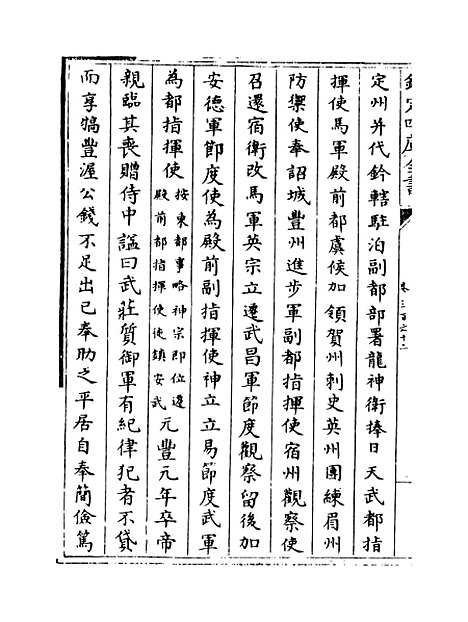 欽定四庫全書
卷三百六十二
定州并代鈐轄駐泊副都部署龍神衛捧日天武都指
揮使馬軍殿前都虞候加領賀州刺史英州團練眉州
防禦使奉詔城豐州進步軍副都指揮使宿州觀察使
召還宿衛改馬軍英宗立遷武昌軍節度觀察留後加
安德軍節度使為殿前副指揮使神立立易節度武軍
為都指揮使按東都事略神宗即位遷殿前都指揮使徙鎮安武元豐元年卒帝
親臨其喪贈侍中諡曰武莊質御軍有紀律犯者不貸
而享犒豐渥公錢不足出已奉助之平居自奉簡儉篤